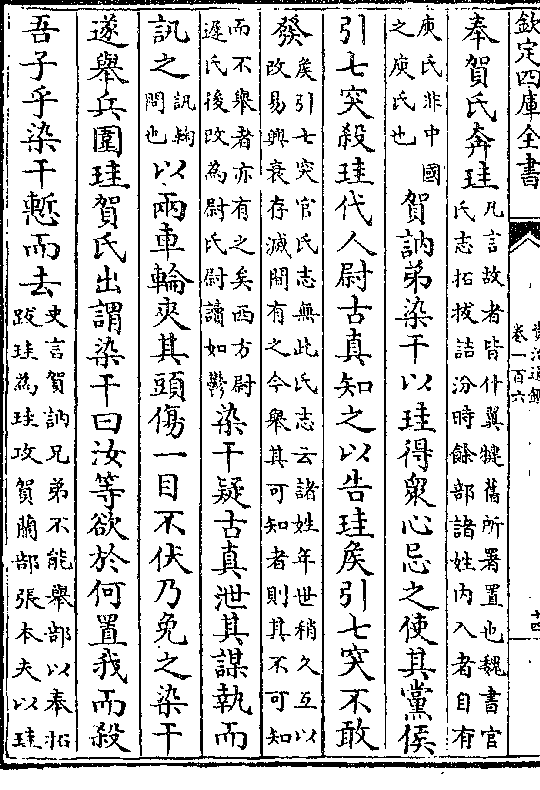 欽定四庫全書
資治通鑑
卷一百六
十四
奉賀氏奔珪
凡言故者皆什翼犍舊所署置也魏書官
氏志拓拔詰汾時餘部諸姓内入者自有
庾氏非中國
之庾氏也
賀訥弟染干以珪得衆心忌之使其黨侯
引七突殺珪代人尉古真知之以告珪矦引七突不敢
發
矦引七突官氏志無此氏志云諸姓年世稍久互以
改易興衰存滅間有之今舉其可知者則其不可知
而不舉者亦有之矣西方尉
遲氏後改為尉氏尉讀如鬱
染干疑古真泄其謀執而
訊之
訊鞫
問也
以兩車輪夾其頭傷一目不伏乃免之染干
遂舉兵圍珪賀氏出謂染干曰汝等欲於何置我而殺
吾子乎染干慙而去
史言賀訥兄弟不能舉部以奉拓
跋珪為珪攻賀蘭部張本夫以珪